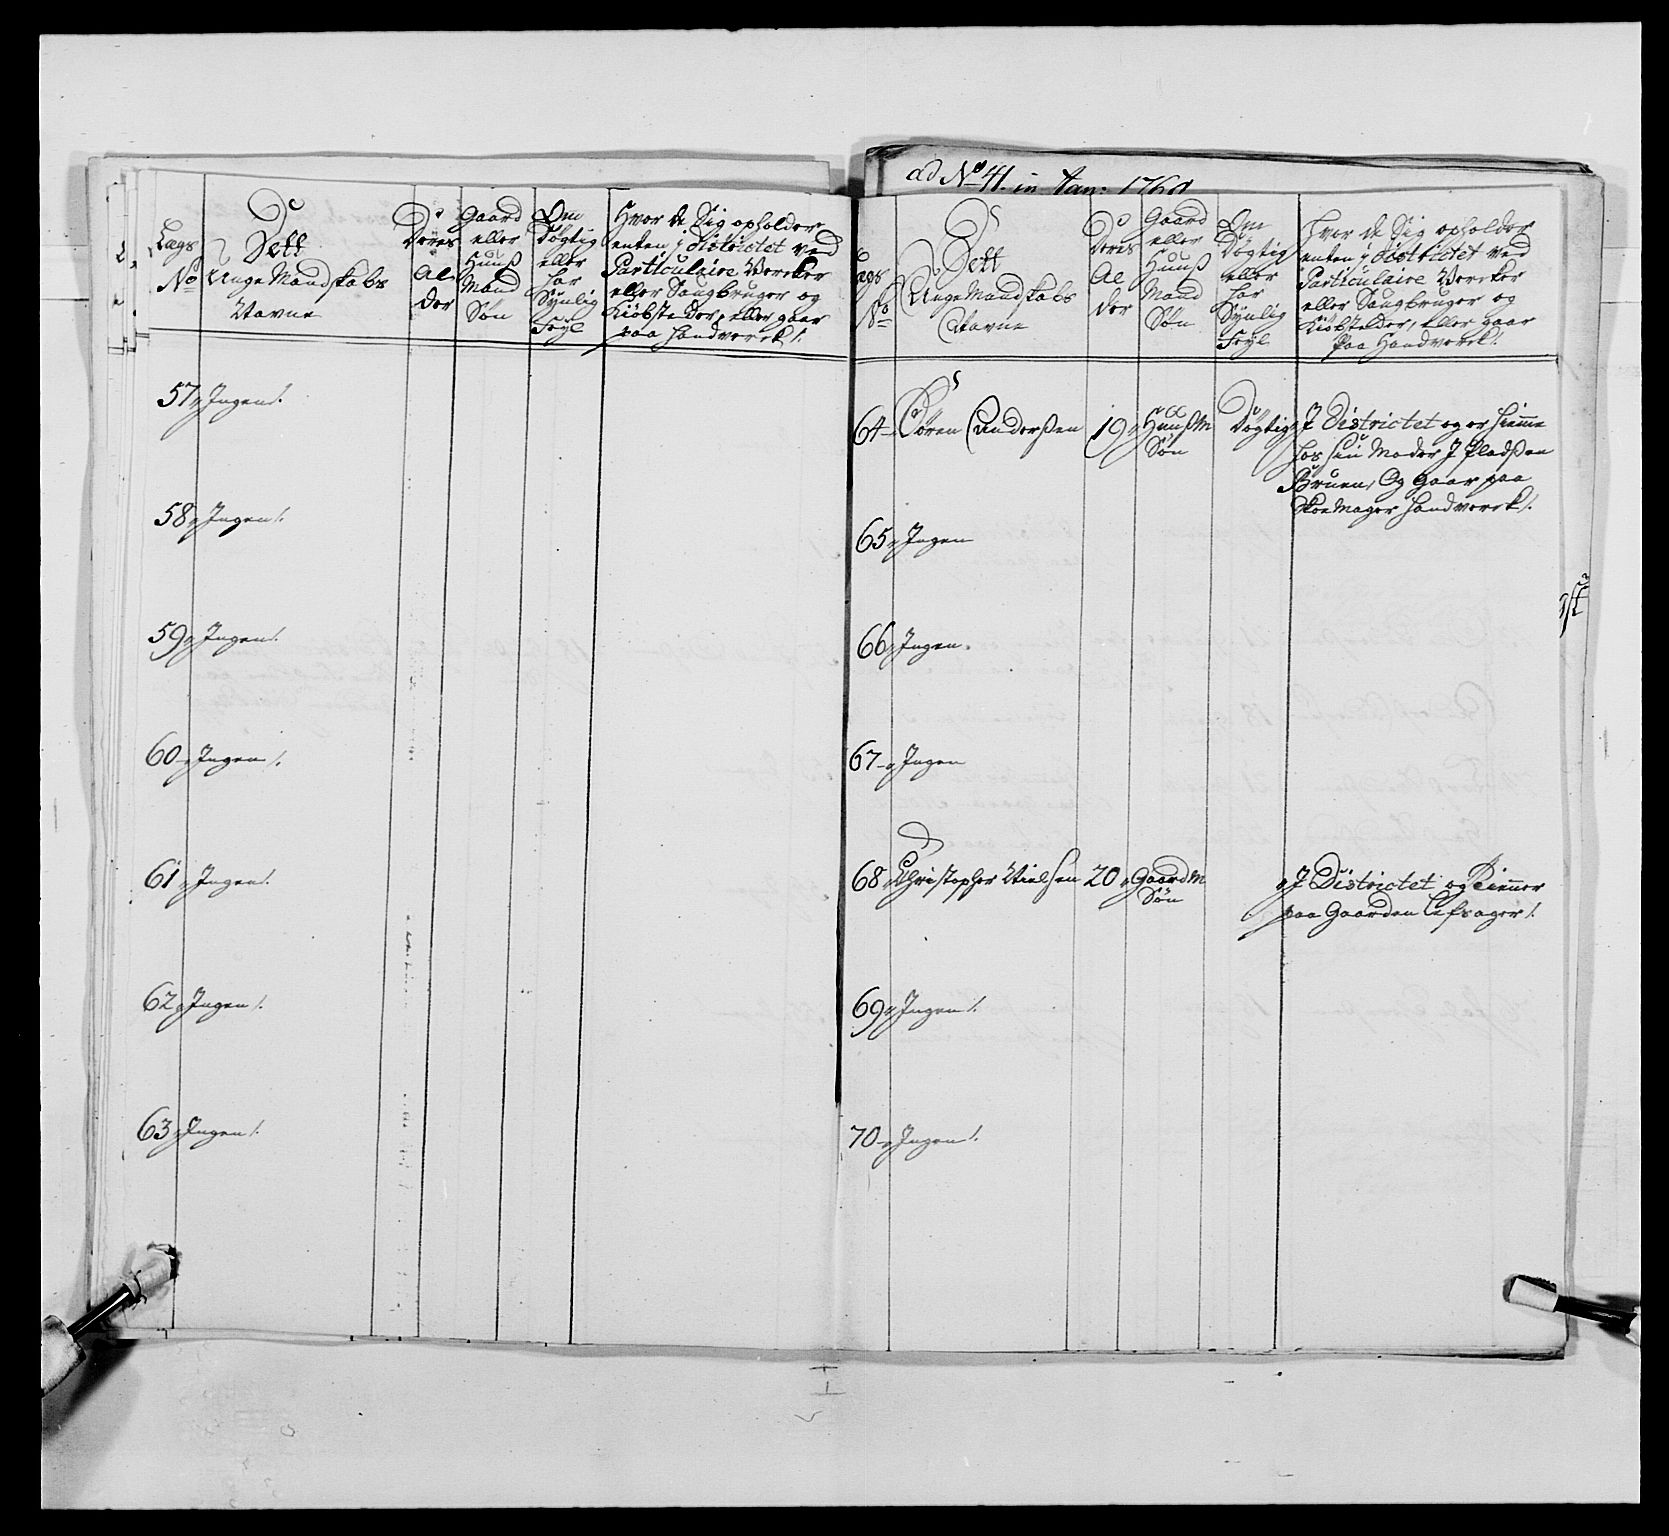 ad No 41. in Jan: 1760
Lægs No
Dett Unge Mandskabs Navne
Deres Alder
Gaard eller Huuß Mand Søn
Om Døgtig eller har Synlig Feyl
Hvor de Sig opholder
enten i Districtet ved
Particulaire Vercker
eller Saugbruger og
Kiøbsteder, eller gaar
paa Handverck /.
57 Ingen /.
58 Ingen /.
59 Ingen /.
60 Ingen /.
61 Ingen /.
62 Ingen /.
63 Ingen /.
Lægs No
Dett Unge Mandskabs Navne
Deres Alder
Gaard eller Huuß Mand Søn
Om Døgtig eller har Synlig Feyl
Hvor de Sig opholder
enten i Districtet ved
Particulaire Vercker
eller Saugbruger og
Kiøbsteder, eller gaar
paa Handverck /.
64 Søren Anderßen 19 HuußM Søn Døgtig I Districtet og er hiemme
hos sin Moder I Pladßen
Bruen, Og Gaar paa
Skoemager Handverck /.
65 Ingen
66 Ingen
67 Ingen
68 Christopher Nielsen 20 GaardM Søn I Districtet og Tienner
paa Gaarden
69 Ingen /.
70 Ingen /.